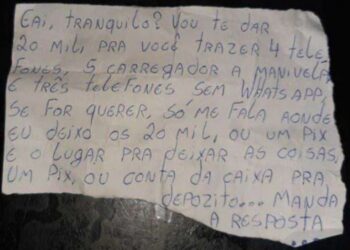 Eai, TRANQUILO? VOU TE DAR
20 MIL, PRA VOCÊ TRAZER 4 TELE
FONES, 5 CARREGADOR A MANIVELA
E TRÊS TELEFONES SEM WHATSAPP,
SE FOR QUERER, SÓ ME FALA AONDE
EU DEIXO OS 20 MIL, OU UM PIX
E O LUGAR PRA DEIXAR AS COISAS,
UM PIX, OU CONTA DA CAIXA PRA
DEPOZITO... MANDA
A RESPOSTA
...